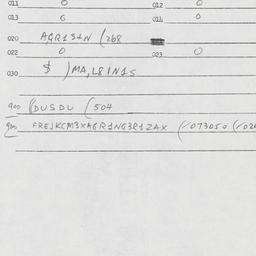 011 0 012 0
013 6 014 0
020 AGR1S1N (268
022 0 023 0
030 $ )MA,L8IN1S
900 (DUSDU (504
900 FREJKCM3XAGR1NG3R1ZAX (-073050 (-02